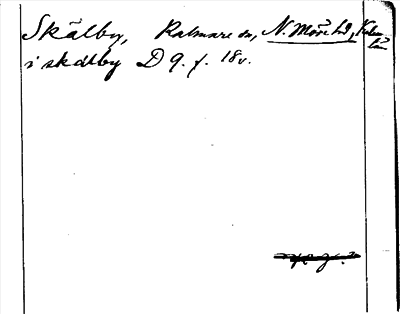 Skälby, Kalmare sn, N. Möre hd, Kalm. län
i skälby D 9. f. 18v.